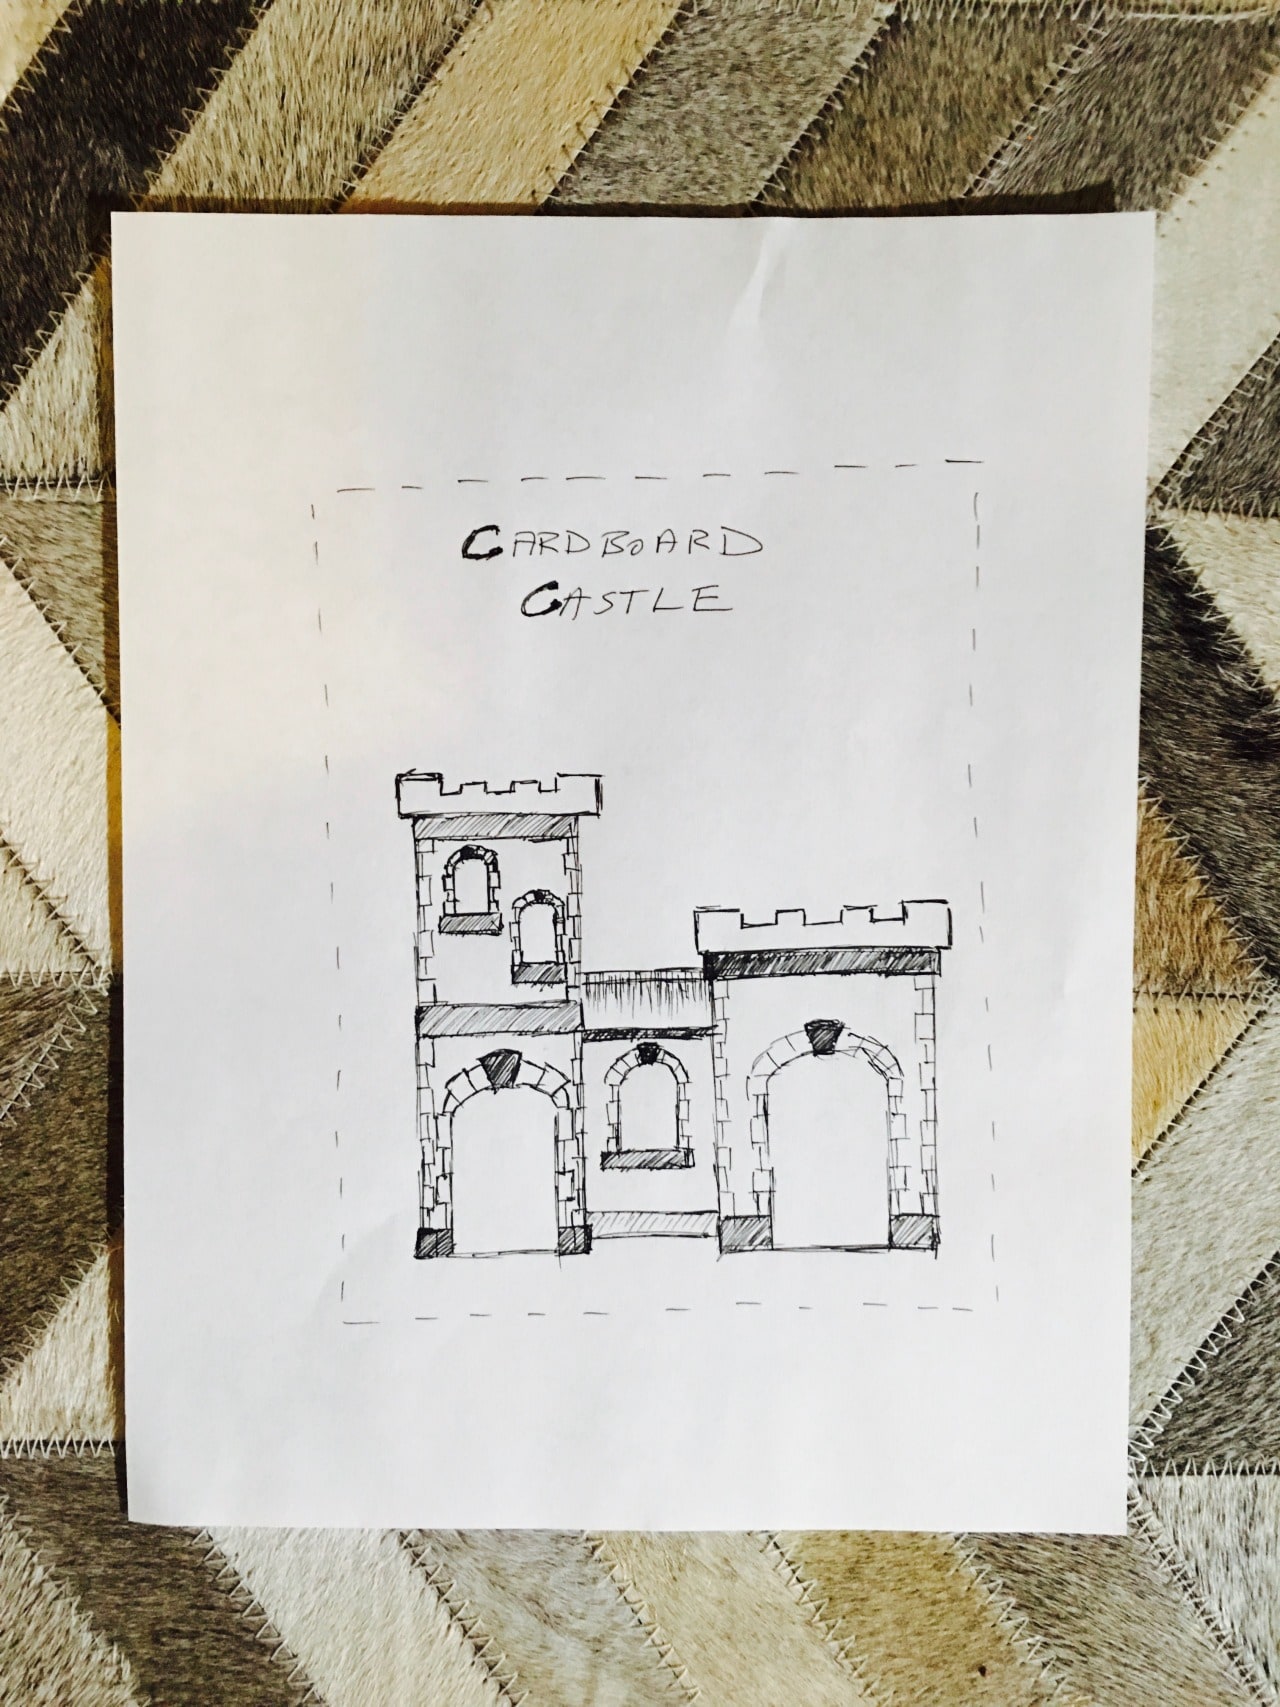 CARDBOARD
CASTLE